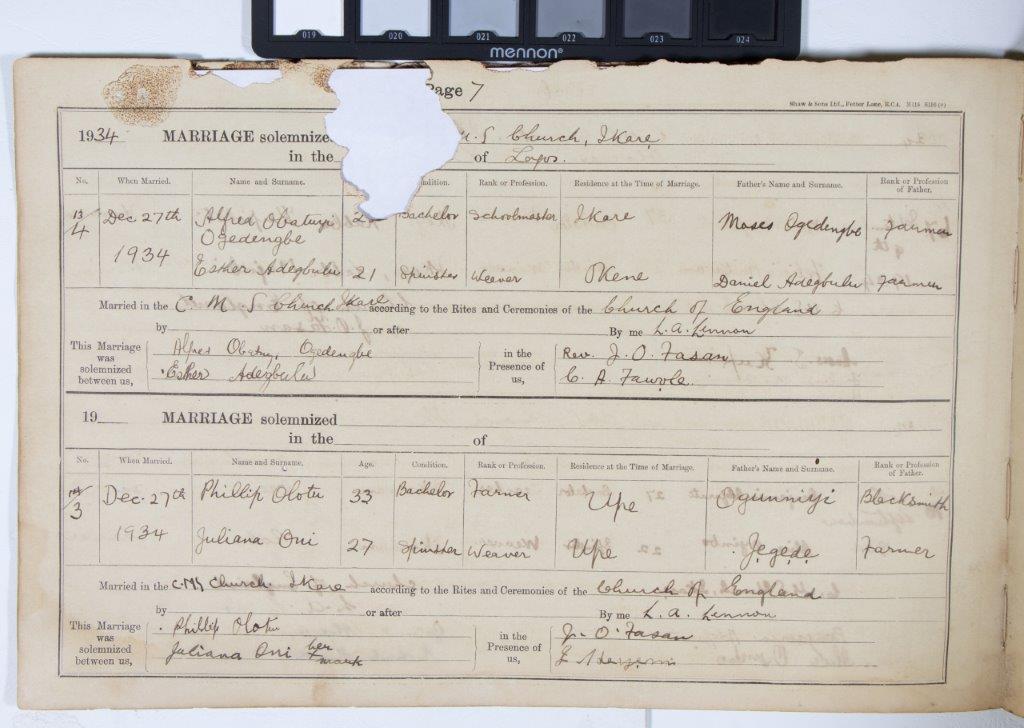 019 020 021 022 023 024
mennon®
Page 7
Shaw & Sons Ltd., Fetter Lane, E.C.4.
1934 MARRIAGE solemnized M. S Church, Ikare
in the of Lagos.
No. When Married. Name and Surname. Condition. Rank or Profession. Residence at the Time of Marriage. Father's Name and Surname. Rank or Profession of Father.
13/4 Dec 27th Alfred Obatuyi Bachelor Schoolmaster Ikare Moses Ogedengbe Farmer
Ogedengbe
1934
Esther Adegbulu 21 Spinster Weaver Okene Daniel Adegbulu Farmer
Married in the C. M S Church Ikare according to the Rites and Ceremonies of the Church of England
by or after By me L. A. Lennon
This Marriage was solemnized between us,
Alfred Obatuyi Ogedengbe
Esther Adegbulu
in the Presence of us,
Rev. J. O. Fasan
C. A. Fawole.
19 MARRIAGE solemnized
in the of
No. When Married. Name and Surname. Age. Condition. Rank or Profession. Residence at the Time of Marriage. Father's Name and Surname. Rank or Profession of Father.
3 Dec. 27th Phillip Olotu 33 Bachelor Farmer Upe Ogunniyi Blacksmith
1934 Juliana Oni 27 Spinster Weaver Upe Jegede Farmer
Married in the C.M.S Church Ikare according to the Rites and Ceremonies of the Church of England
by or after By me L. A. Lennon
This Marriage was solemnized between us,
Phillip Olotu
Juliana Oni her mark
in the Presence of us,
J. O. Fasan